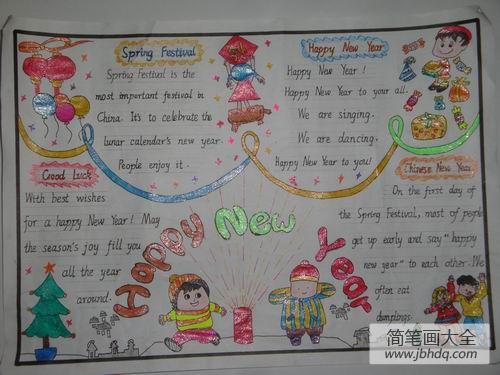 Spring Festival
Spring Festival is the
most important festival in
China. It's to celebrate the
lunar calendar's new year.
People enjoy it.
Happy New Year
Happy New Year!
Happy New Year to your all.
We are singing.
We are dancing.
Happy New Year to you!
Good Luck
With best wishes
for a happy New Year! May
the season's joy fill you
all the year
around.
Chinese New Year
On the first day of
the Spring Festival, most of people
get up early and say "happy
new year" to each other. We
often eat
dumplings.
Happy New Year
简笔画大全
www.jbhdq.com